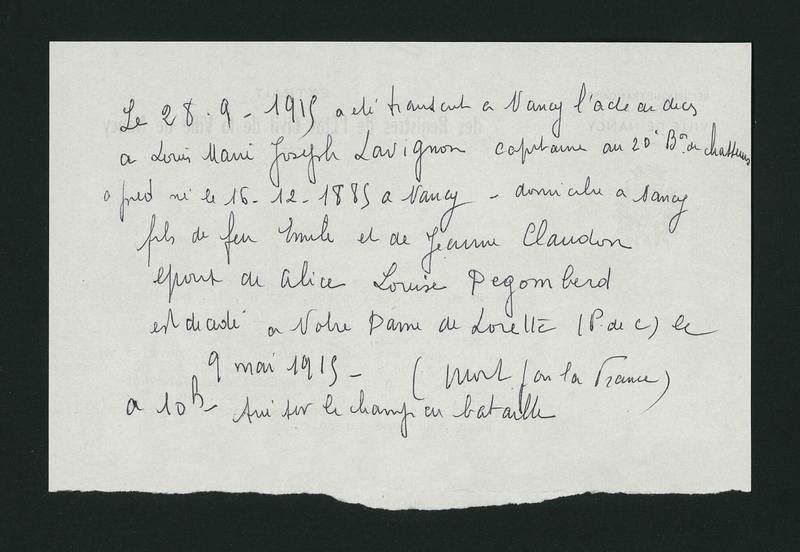 Le 28-9-1915 a eté transcrit a Nancy l'acte de deces
a Louis Marie Joseph Lavignon capitaine au 20e Bon de chasseurs
a pied né le 16-12-1885 a Nancy - domicilié a Nancy
fils de feu Emile et de Jeanne Claudon
epoux de Alice Louise Degomberd
est decédé a Notre Dame de Lorette (P. de C) le
9 mai 1915 - (Mort pour la France)
a 10h - tué sur le champ de bataille